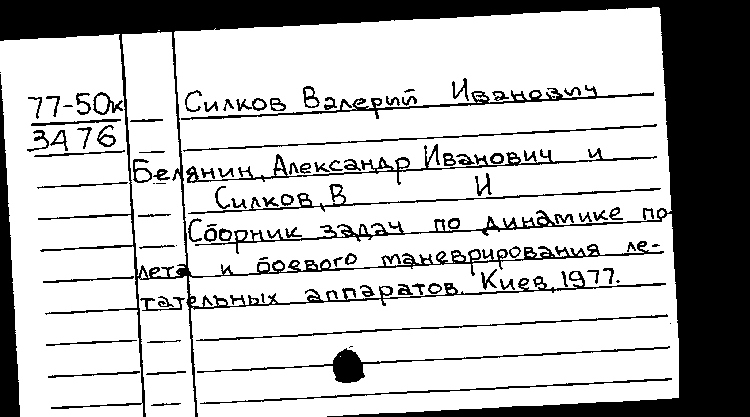 77-50к Силков Валерий Иванович
3476
Белянин, Александр Иванович и
Силков, В И
Сборник задач по динамике по-
лета и боевого маневрирования ле-
тательных аппаратов. Киев, 1977.